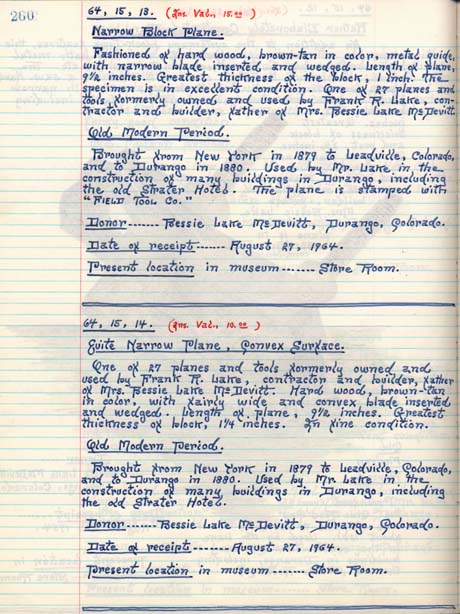 260
64, 15, 13. (Ins. Val., 15.00)
Narrow Block Plane.
Fashioned of hard wood, brown-tan in color, metal guide,
with narrow blade inserted and wedged. Length of plane,
9½ inches. Greatest thickness of the block, 1 inch. The
specimen is in excellent condition. One of 27 planes and
tools, formerly owned and used by Frank R. Lake, con-
tractor and builder, father of Mrs. Bessie Lake McDevitt.
Old Modern Period.
Brought from New York in 1879 to Leadville, Colorado,
and to Durango in 1880. Used by Mr. Lake in the
construction of many buildings in Durango, including
the old Strater Hotel. The plane is stamped with
"FIELD TOOL CO."
Donor ----- Bessie Lake McDevitt, Durango, Colorado.
Date of receipt ------ August 27, 1964.
Present location in museum ------ Store Room.
64, 15, 14. (Ins. Val., 10.00)
Quite Narrow Plane, Convex Surface.
One of 27 planes and tools formerly owned and
used by Frank R. Lake, contractor and builder, father
of Mrs. Bessie Lake McDevitt. Hard wood, brown-tan
in color, with fairly wide and convex blade inserted
and wedged. Length of plane, 9½ inches. Greatest
thickness of block, 1¼ inches. In fine condition.
Old Modern Period.
Brought from New York in 1879 to Leadville, Colorado,
and to Durango in 1880. Used by Mr. Lake in the
construction of many buildings in Durango, including
the old Strater Hotel.
Donor ------ Bessie Lake McDevitt, Durango, Colorado.
Date of receipt ------ August 27, 1964.
Present location in museum ----- Store Room.